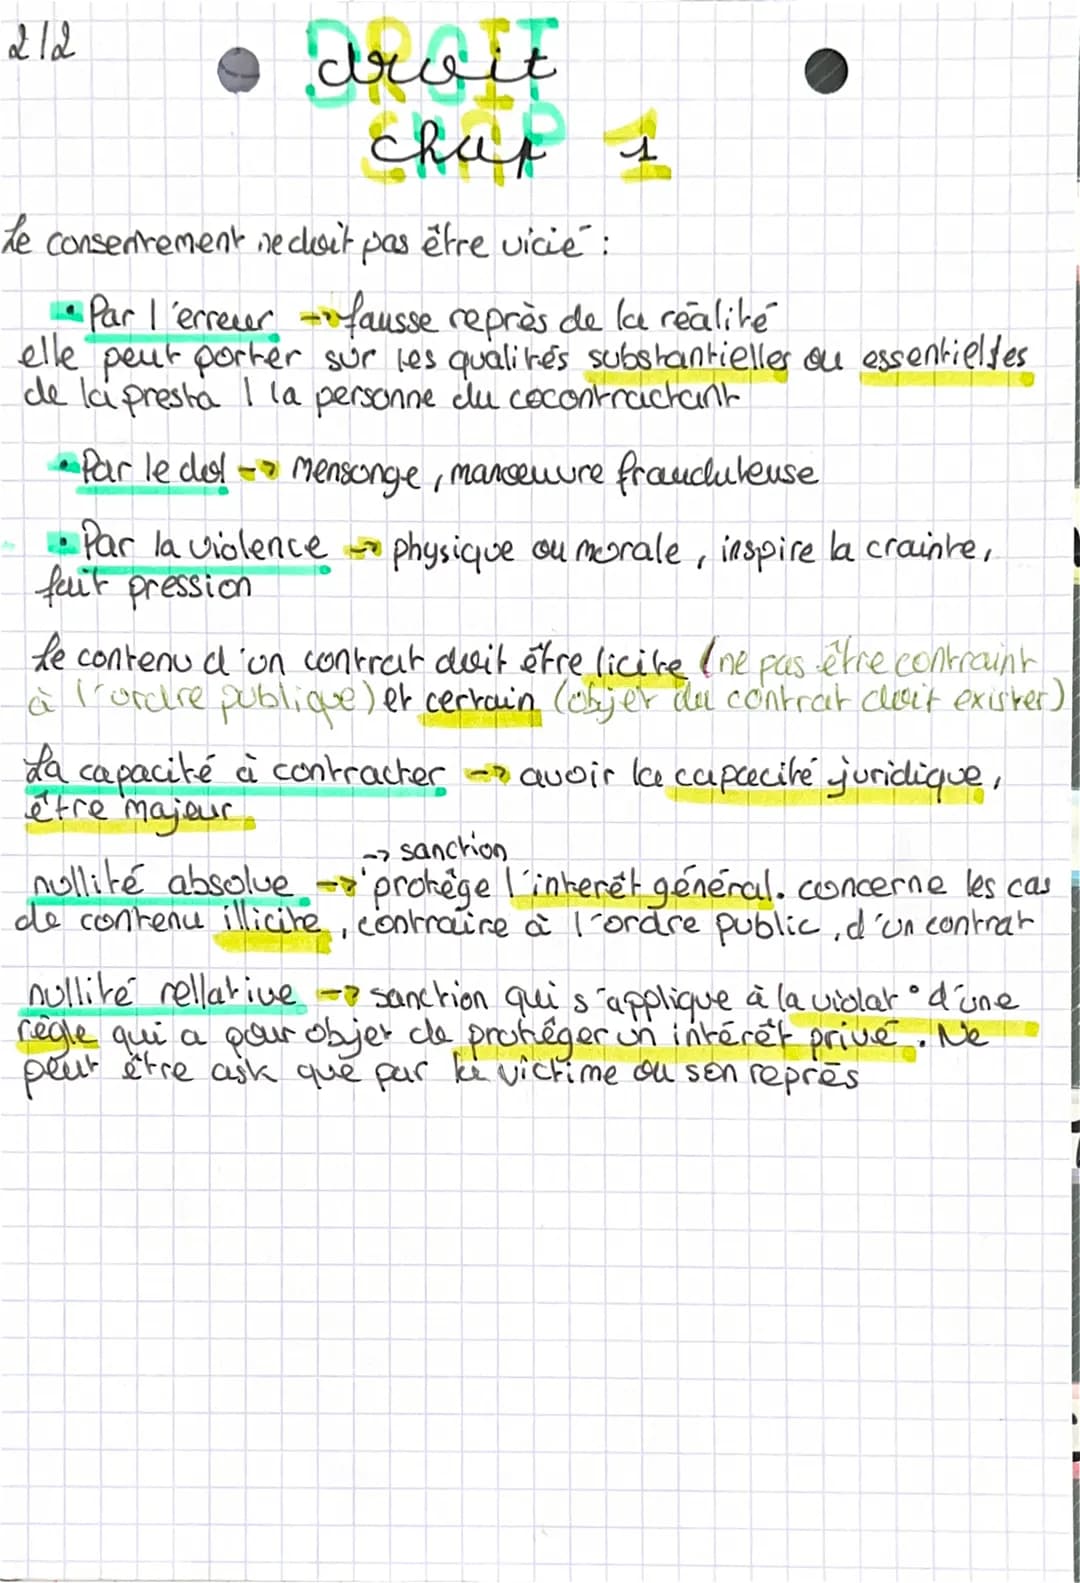 2/2
DROIT
droit
CHAP 1
chap 1
Le consentement ne doit pas être vicié :
• Par l'erreur → fausse représ de la réalité
elle peut porter sur les qualités substantielles ou essentielles
de la presta / la personne du cocontractant
• Par le dol → mensonge, manœuvre frauduleuse
• Par la violence → physique ou morale, inspire la crainte,
fait pression
Le contenu d'un contrat doit être licite (ne pas être contraint
à l'ordre publique) et certain (objet du contrat doit exister)
La capacité à contracter → avoir la capacité juridique,
être majeur
→ sanction
nullité absolue → protège l'interêt général. concerne les cas
de contenu illicite, contraire à l'ordre public, d'un contrat
nullité rellative → sanction qui s'applique à la violat° d'une
règle qui a pour objet de protéger un intérêt privé. Ne
peut être ask que par la victime ou son représ